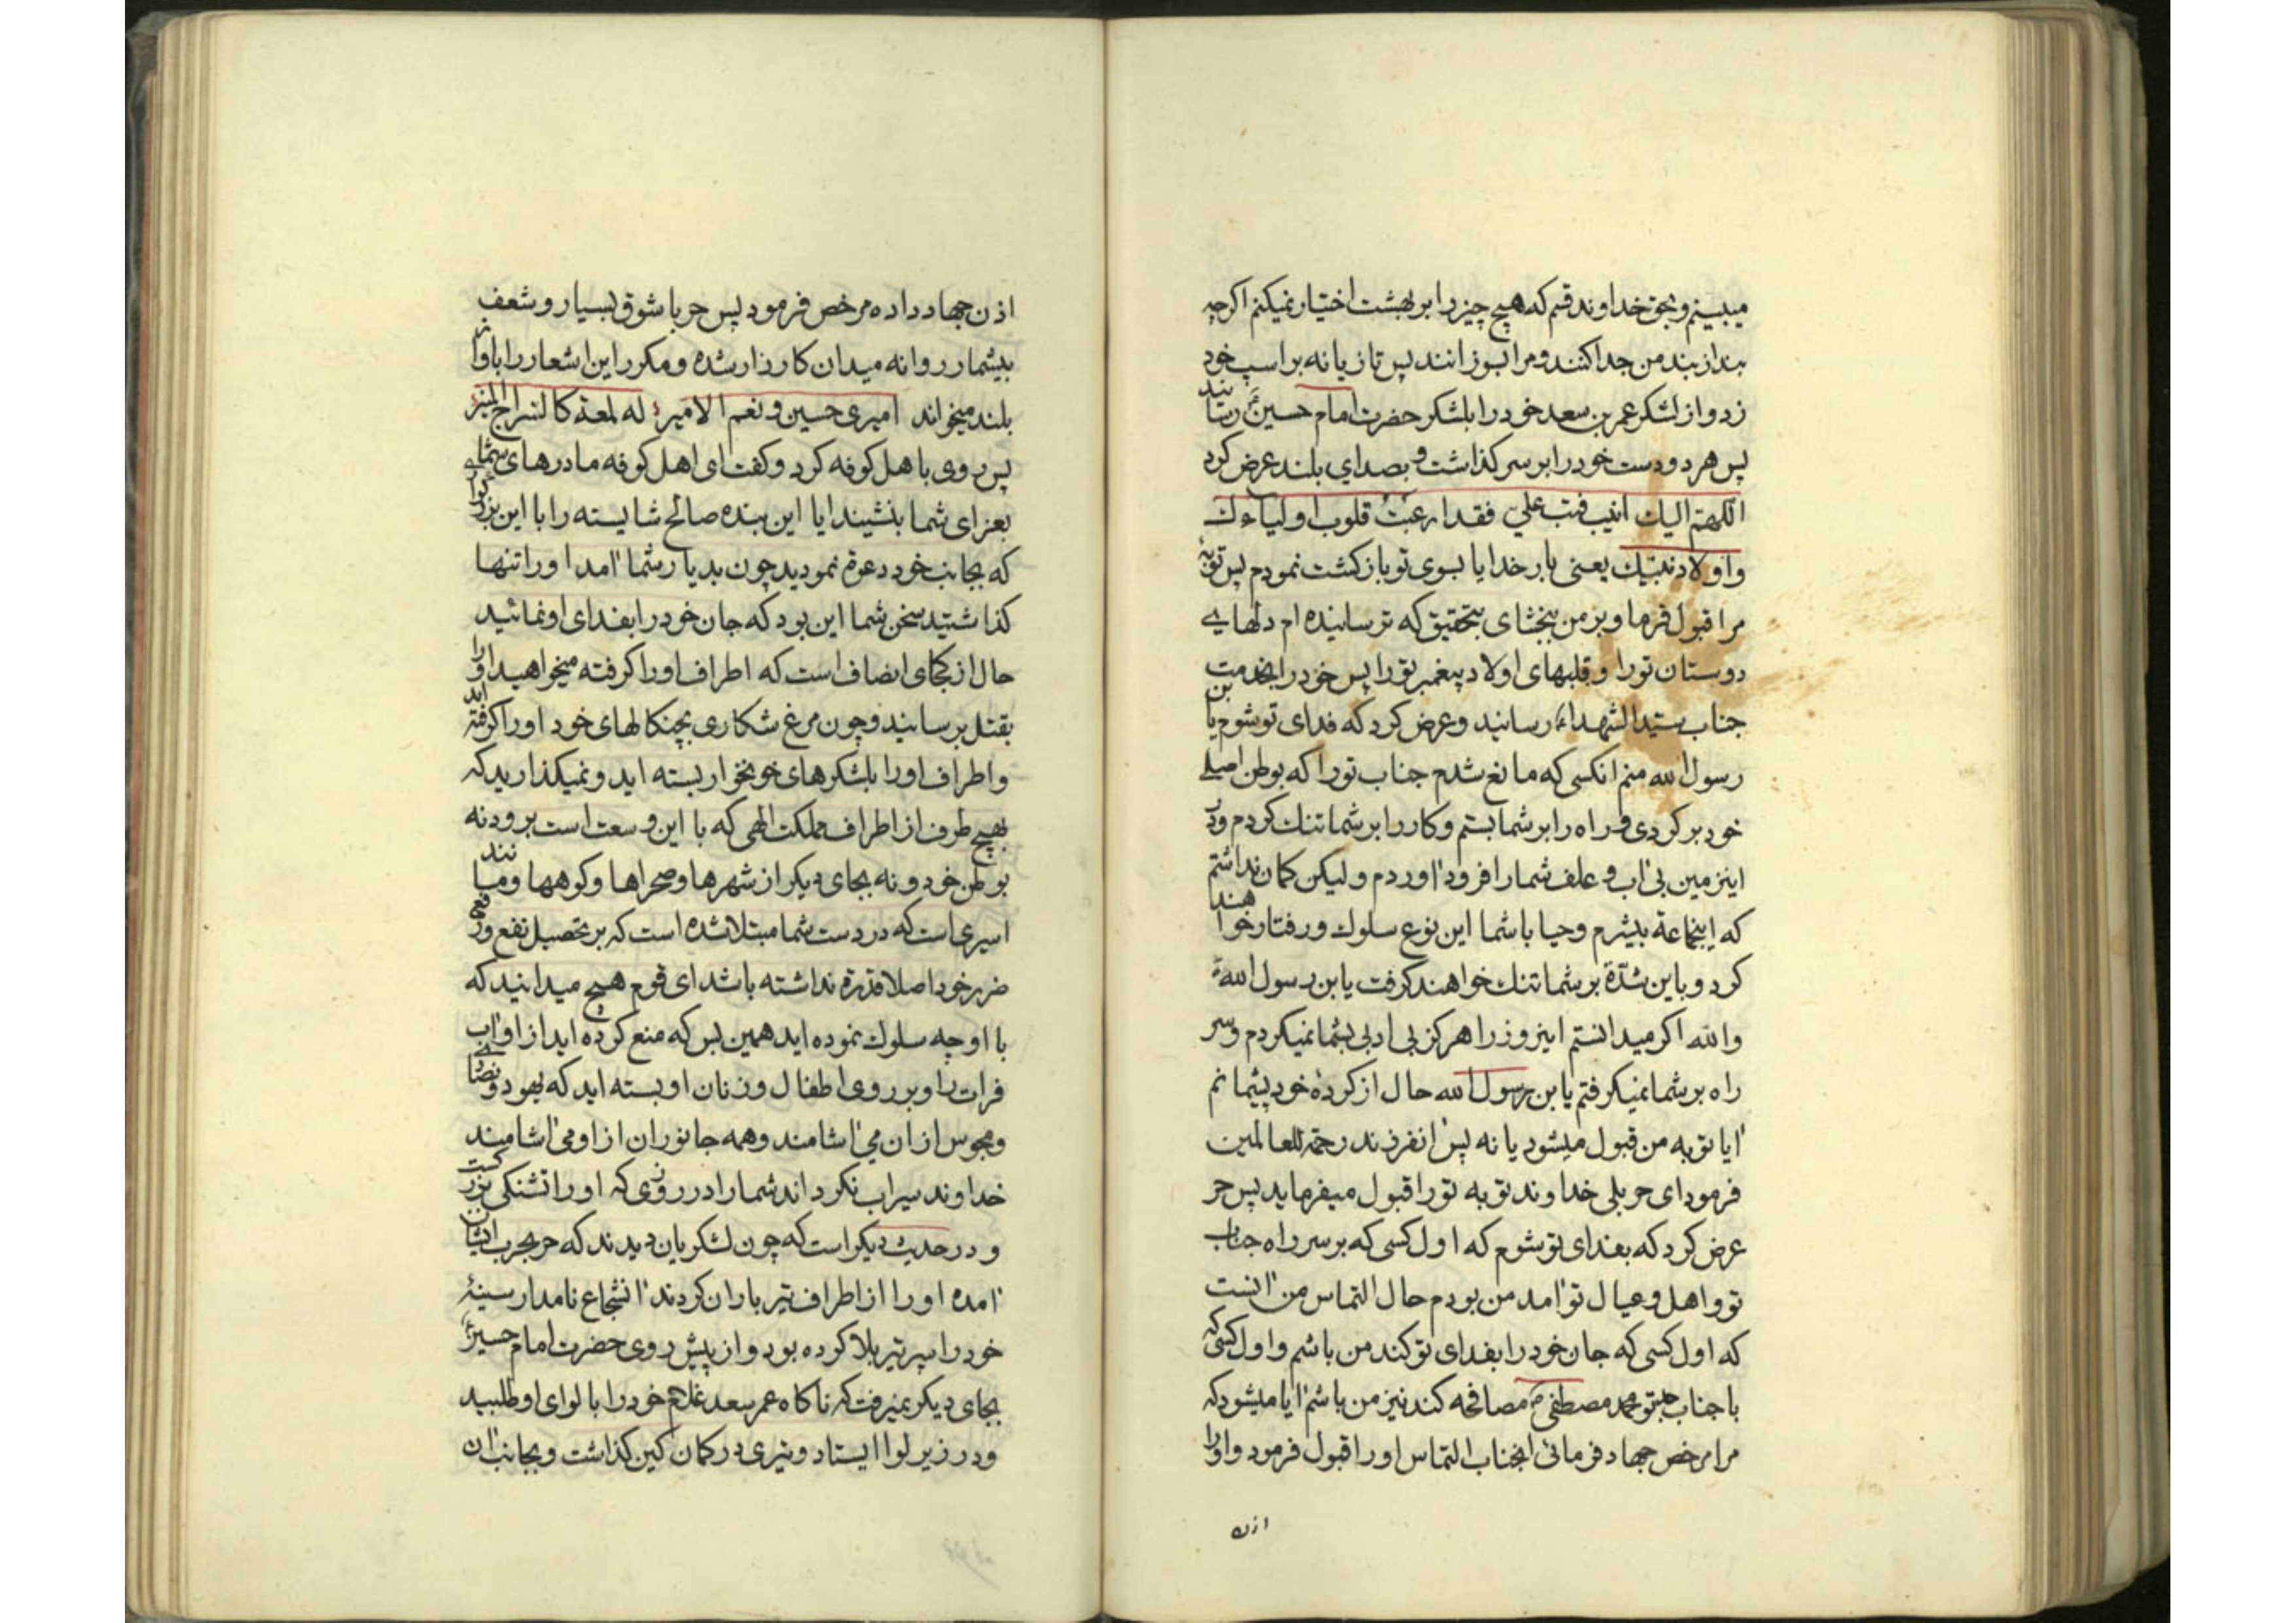 میبینم و بحق خداوند قسم که هیچ چیز را بر بهشت اختیار نمیکنم اکرچه
بند از بند من جدا کنند و مرا بسوزانند پس تازیانه بر اسب خود
زد و از لشکر عمر بن سعد خود را بلشکر حضرت امام حسین رسانید
پس هر دو دست خود را بر سر کذاشت و بصدای بلند عرض کرد
اللهم الیک انیب فتب علی فقد ارعبت قلوب اولیاءک
و اولاد نبیک یعنی بار خدایا بسوی تو باز کشت نمودم پس توبه
مرا قبول فرما و بر من ببخشای بتحقیق که ترسانیده ام دلهای
دوستان تو را و قلبهای اولاد پیغمبر تو را پس خود را بخدمت
جناب سید الشهداء رسانید و عرض کرد که فدای تو شوم یا بن
رسول الله منم انکسی که مانع شدم جناب تو را که بوطن اصلی
خود بر کردی و راه را بر شما بستم و کار را بر شما تنک کردم و در
اینزمین بی آب و علف شما را فرود آوردم و لیکن کمان نداشتم
که اینجماعة بیشرم و حیا با شما این نوع سلوک و رفتار خواهند
کرد و باین شدة بر شما تنک خواهند کرفت یا بن رسول الله
والله اکر میدانستم اینروز را هرکز بی ادبی بشما نمیکردم و سر
راه بر شما نمیکرفتم یا بن رسول الله حال از کرده خود پشیمانم
آیا توبه من قبول میشود یا نه پس آنفرزند رحمة للعالمین
فرمود ای حر بلی خداوند توبه تو را قبول میفرماید پس حر
عرض کرد که بفدای تو شوم که اول کسی که بر سر راه جناب
تو و اهل و عیال تو آمد من بودم حال التماس من آنست
که اول کسی که جان خود را بفدای تو کند من باشم و اول کسی که
با جناب جد تو محمد مصطفی ص مصافحه کند نیز من باشم آیا میشود که
مرا مرخص جهاد فرمائی انجناب التماس او را قبول فرمود و او را
اذن
اذن جهاد داده مرخص فرمود پس حر با شوق بسیار و شعف
بیشمار روانه میدان کارزار شده و مکرر این اشعار را باواز
بلند میخواند امیری حسین و نعم الامیر له لمعة کالسراج المنیر
پس روی باهل کوفه کرد و کفت ای اهل کوفه مادرهای شما
بعزای شما بنشیند ایا این بنده صالح شایسته را با این بزرکواری
که بجانب خود دعوة نمودید چون بدیار شما آمد او را تنها
کذاشتید سخن شما این بود که جان خود را بفدای او نمائید
حال از کجای انصاف است که اطراف او را کرفته میخواهید او را
بقتل برسانید و چون مرغ شکاری بچنکالهای خود او را کرفته اید
و اطراف او را بلشکرهای خونخوار بسته اید و نمیکذارید که
بهیچ طرف از اطراف مملکت الهی که با این وسعت است برود نه
بوطن خود و نه بجای دیکر از شهرها و صحراها و کوهها و مانند
اسیری است که در دست شما مبتلا شده است که بر تحصیل نفع و رفع
ضرر خود اصلا قدرة نداشته باشد ای قوم هیچ میدانید که
با او چه سلوک نموده اید همین بس که منع کرده اید از او آب
فرات را و بر روی اطفال و زنان او بسته اید که یهود و نصارا
و مجوس از ان می آشامند و همه جانوران از او می آشامیند
خداوند سیراب نکرداند شما را در روزی که او را تشنکی بزرکست
و در حدیث دیکر است که چون لشکریان دیدند که حر بحرب ایشان
آمده او را از اطراف تیر باران کردند آنشجاع نامدار سینهٔ
خود را سپر تیر بلا کرده بود و از پیش روی حضرت امام حسین
بجای دیکر نمیرفت که ناکاه عمر سعد غلام خود را با لوای او طلبید
و در زیر لوا ایستاد و تیری در کمان کین کذاشت و بجانب ان